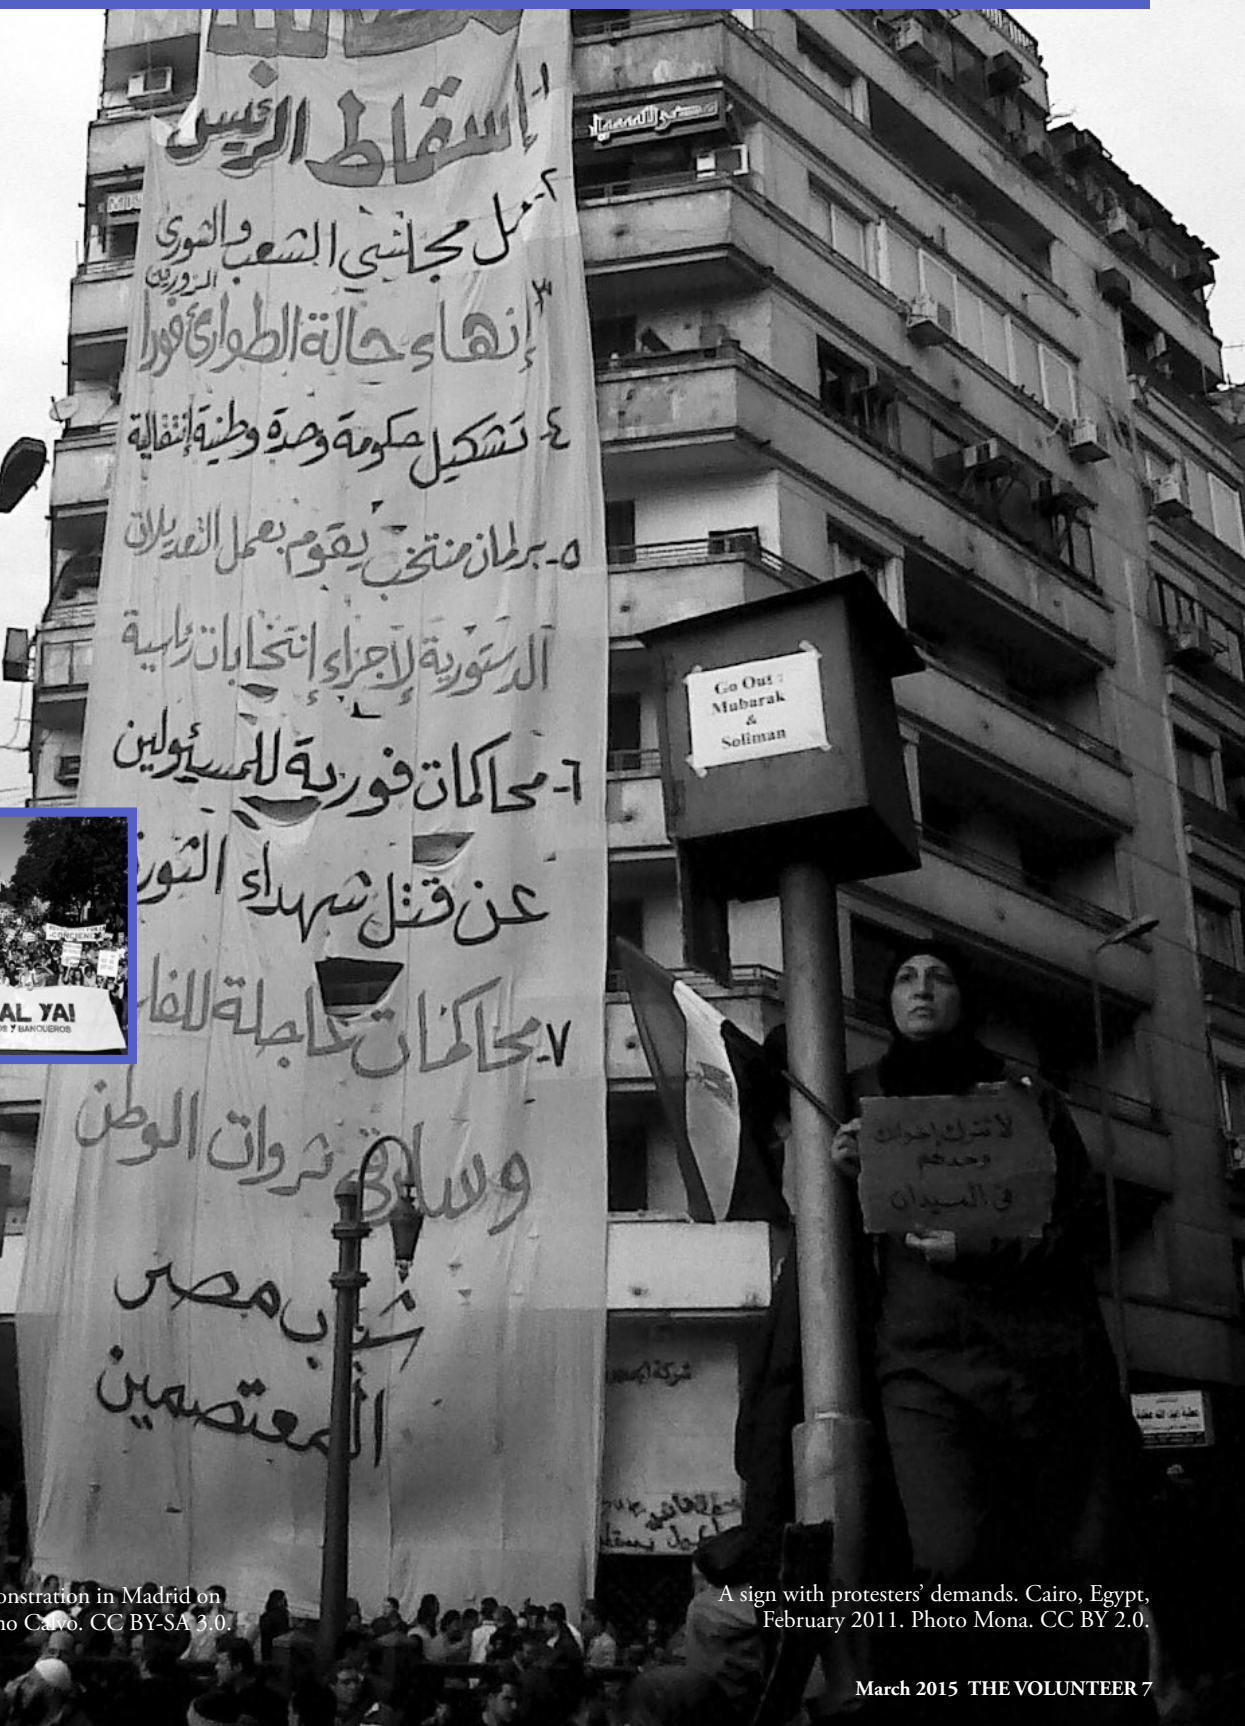 ١- إسقاط الرئيس
٢- حل مجلسي الشعب والشورى
المزورين
٣- إنهاء حالة الطوارئ فورا
٤- تشكيل حكومة وحدة وطنية إنتقالية
٥- برلمان منتخب يقوم بعمل التعديلات
الدستورية لإجراء إنتخابات رئاسية
٦- محاكمات فورية للمسئولين
عن قتل شهداء الثور
٧- محاكمات عاجلة للفا
وسارقي ثروات الوطن
شباب مصر
المعتصمين
Go Out :
Mubarak
&
Soliman
لا تترك إخوانك
وحدهم
في الميدان
AL YA!
OS Y BANQUEROS
شركة
عطية عبد الله عطية
onstration in Madrid on
no Calvo. CC BY-SA 3.0.
A sign with protesters’ demands. Cairo, Egypt,
February 2011. Photo Mona. CC BY 2.0.
March 2015 THE VOLUNTEER 7